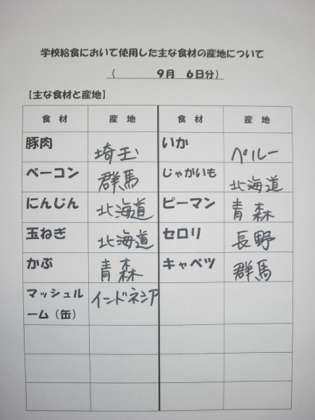 学校給食において使用した主な食材の産地について
（ 9月 6日分）
【主な食材と産地】
食 材 産 地 食 材 産 地
豚肉 埼玉 いか ペルー
ベーコン 群馬 じゃがいも 北海道
にんじん 北海道 ピーマン 青森
玉ねぎ 北海道 セロリ 長野
かぶ 青森 キャベツ 群馬
マッシュル インドネシア
ーム（缶）